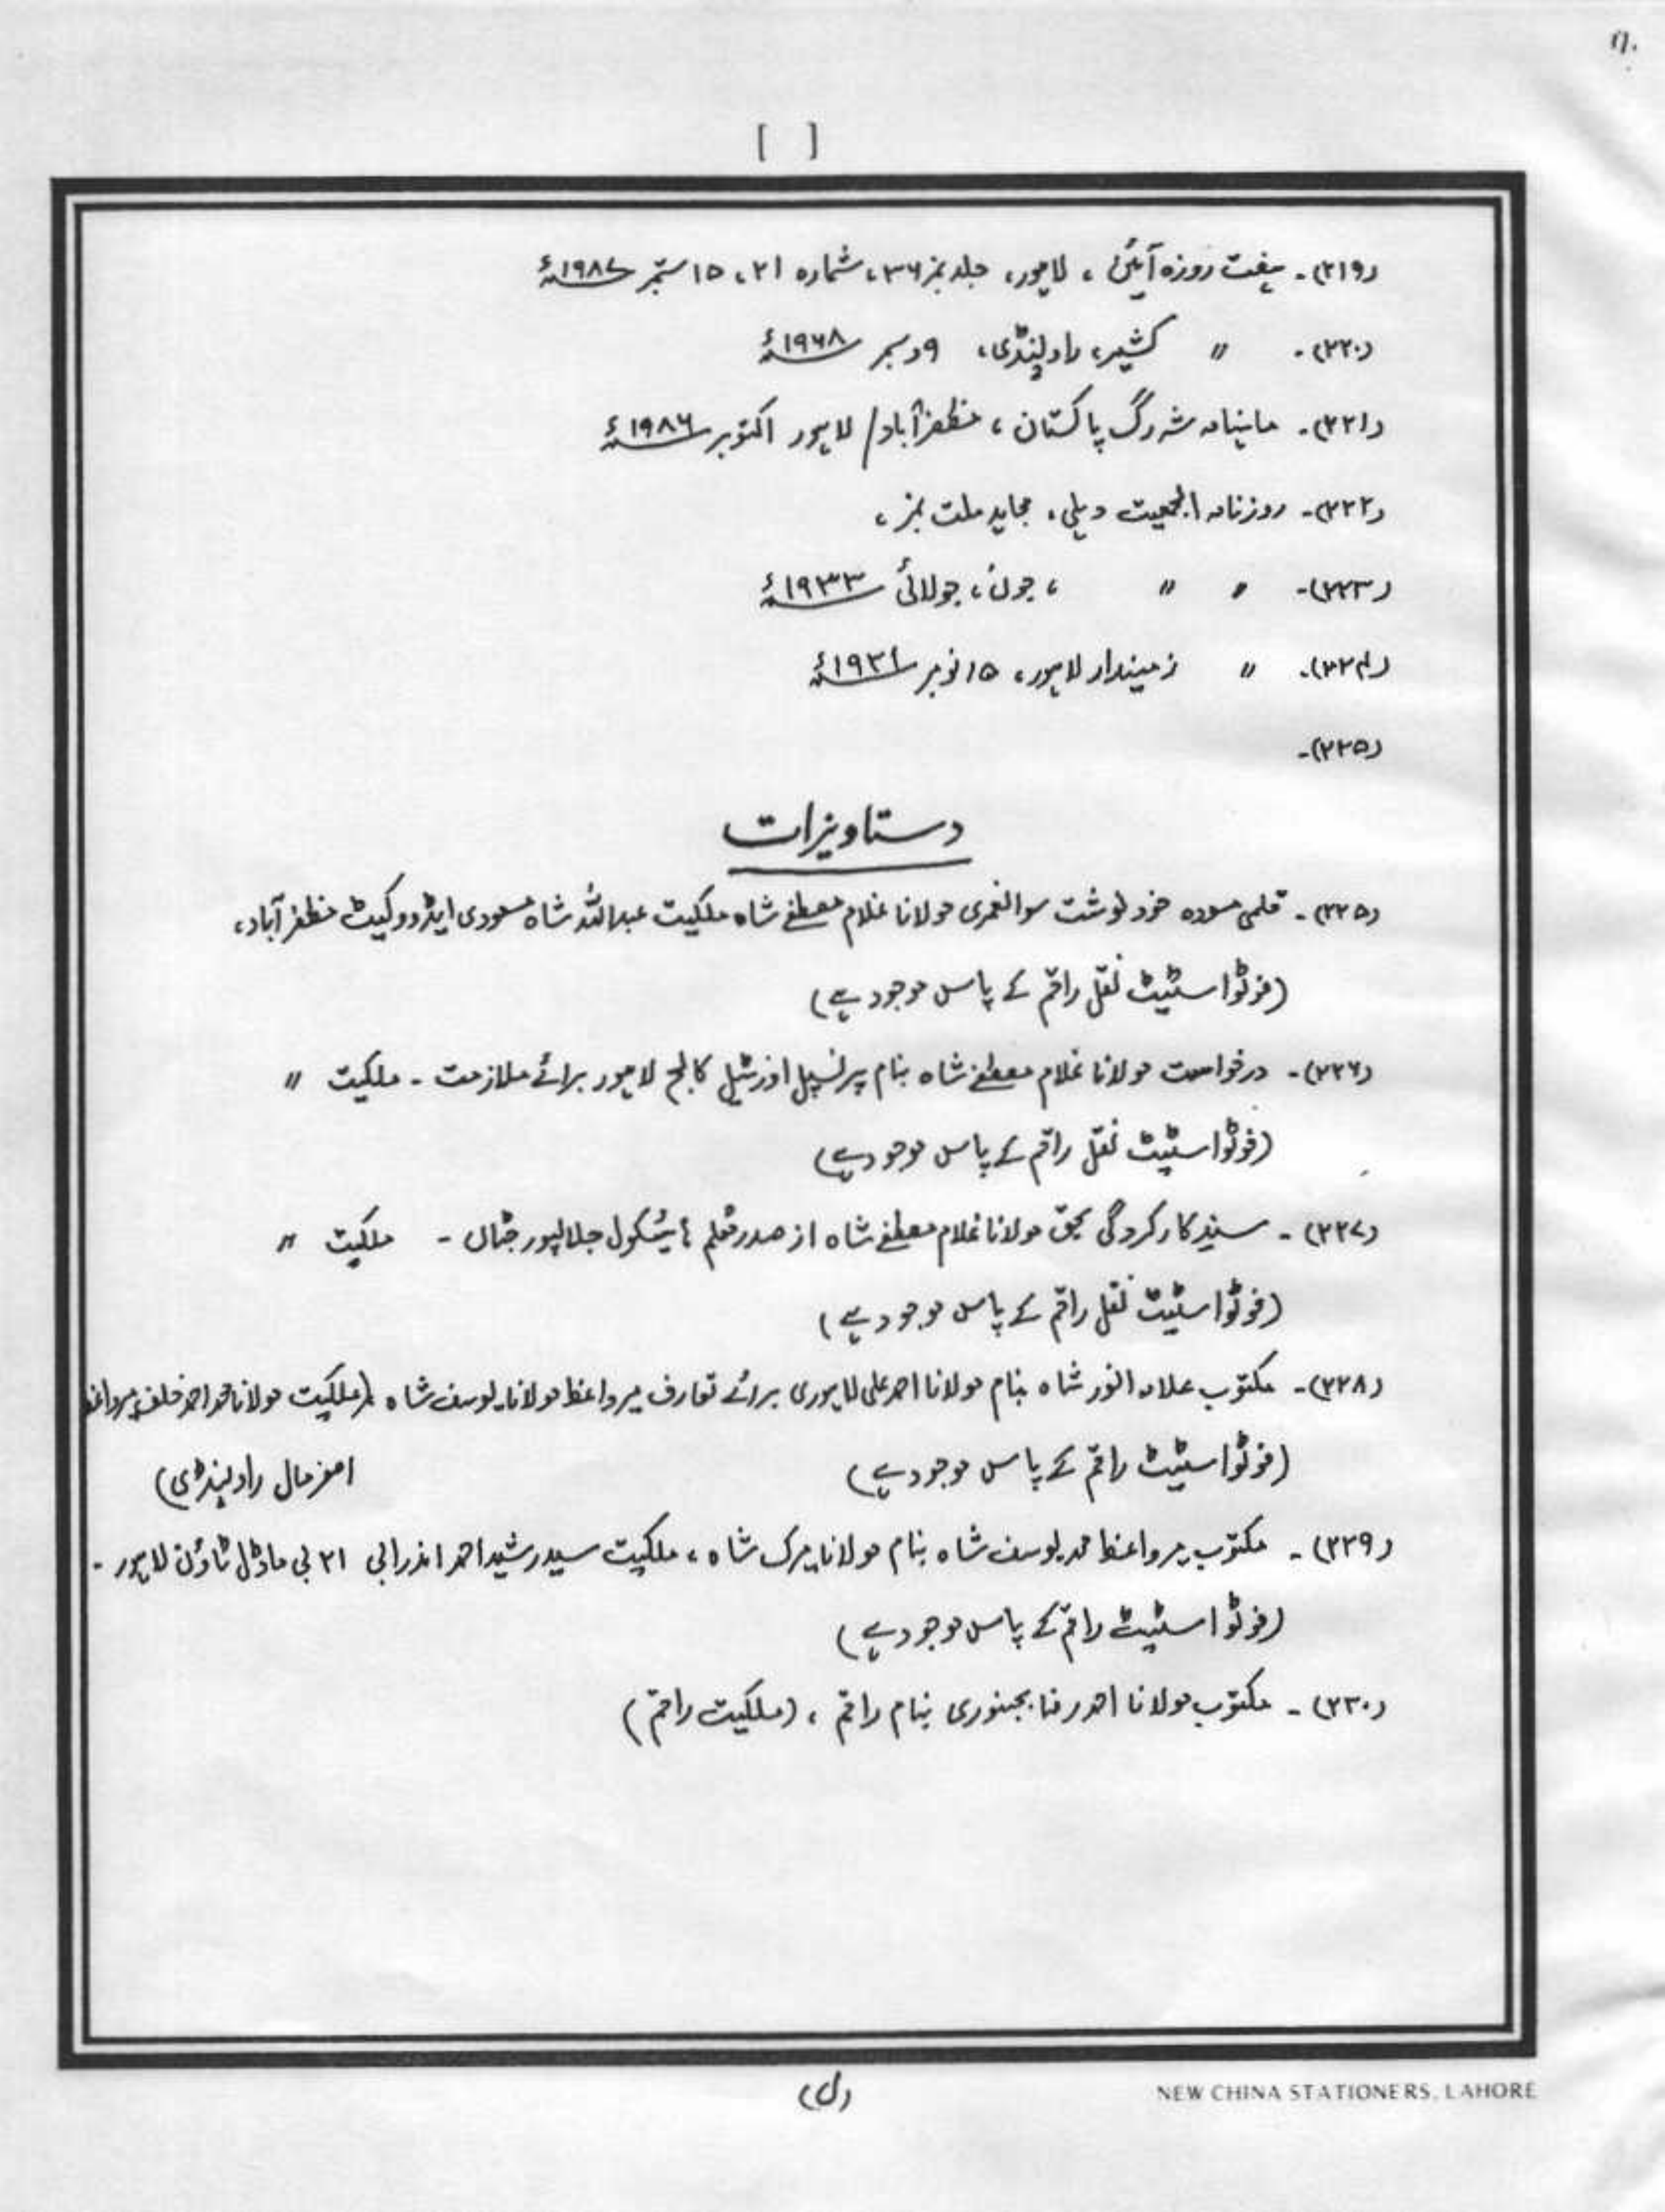 [ ]
(۲۱۹)۔ ہفت روزہ آئین، لاہور، جلد نمبر ۳۶، شمارہ ۲۱، ۱۵ ستمبر ۱۹۸۷ء
(۲۲۰)۔ " کشیر، راولپنڈی، ۹ دسمبر ۱۹۶۸ء
(۲۲۱)۔ ماہنامہ شہ رگ پاکستان، مظفرآباد/ لاہور اکتوبر ۱۹۸۶ء
(۲۲۲)۔ روزنامہ الجمعیت دہلی، مجاہد ملت نمبر،
(۲۲۳)۔ " " ، جون، جولائی ۱۹۳۳ء
(۲۲۴)۔ " زمیندار لاہور، ۱۵ نومبر ۱۹۳۱ء
(۲۲۵)۔
دستاویزات
(۲۲۵)۔ قلمی مسودہ خود نوشت سوانحعمری مولانا غلام مصطفےٰ شاہ ملکیت عبداللہ شاہ مسعودی ایڈووکیٹ مظفر آباد،
(فوٹو اسٹیٹ نقل راقم کے پاس موجود ہے)
(۲۲۶)۔ درخواست مولانا غلام مصطفےٰ شاہ بنام پرنسپل اورنٹیل کالج لاہور برائے ملازمت ۔ ملکیت "
(فوٹو اسٹیٹ نقل راقم کے پاس موجود ہے)
(۲۲۷)۔ سندِ کارکردگی بحق مولانا غلام مصطفےٰ شاہ از صدر معلم ہائیسکول جلالپور جٹاں ۔ ملکیت "
(فوٹو اسٹیٹ نقل راقم کے پاس موجود ہے)
(۲۲۸)۔ مکتوب علامہ انور شاہ بنام مولانا احمد علی لاہوری برائے تعارف میرواعظ مولانا یوسف شاہ (ملکیت مولانا محمد احمد خلف میرواعظ
(فوٹو اسٹیٹ راقم کے پاس موجود ہے) اصغر مال راولپنڈی)
(۲۲۹)۔ مکتوب میرواعظ محمد یوسف شاہ بنام مولانا میرک شاہ، ملکیت سید رشید احمد اندرابی ۲۱ بی ماڈل ٹاؤن لاہور ۔
(فوٹو اسٹیٹ راقم کے پاس موجود ہے)
(۲۳۰)۔ مکتوب مولانا احمد رضا بجنوری بنام راقم، (ملکیت راقم)
(ل)
NEW CHINA STATIONERS, LAHORE